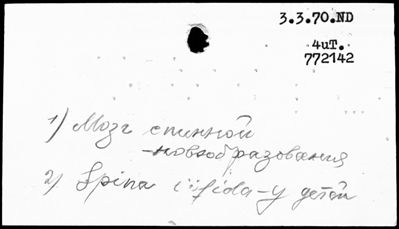 3.3.70.ND
4иТ.
772142
1) Мозг спинной
-новообразования
2) Spina bifida-у детей